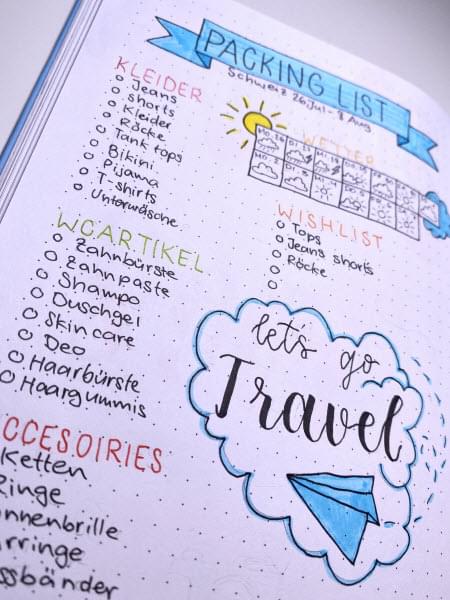 PACKING LIST
Schweiz 26.Jul - 8 Aug
KLEIDER
Jeans
shorts
Kleider
Röcke
Tank tops
Bikini
Pijama
T-shirts
Unterwäsche
WETTER
WISHLIST
Tops
Jeans shorts
Röcke
WCARTIKEL
Zahnbürste
Zahnpaste
Shampo
Duschgel
Skin care
Deo
Haarbürste
Haargummis
let's go
Travel
CCESOIRIES
Ketten
Ringe
nnenbrille
rringe
ssbänder